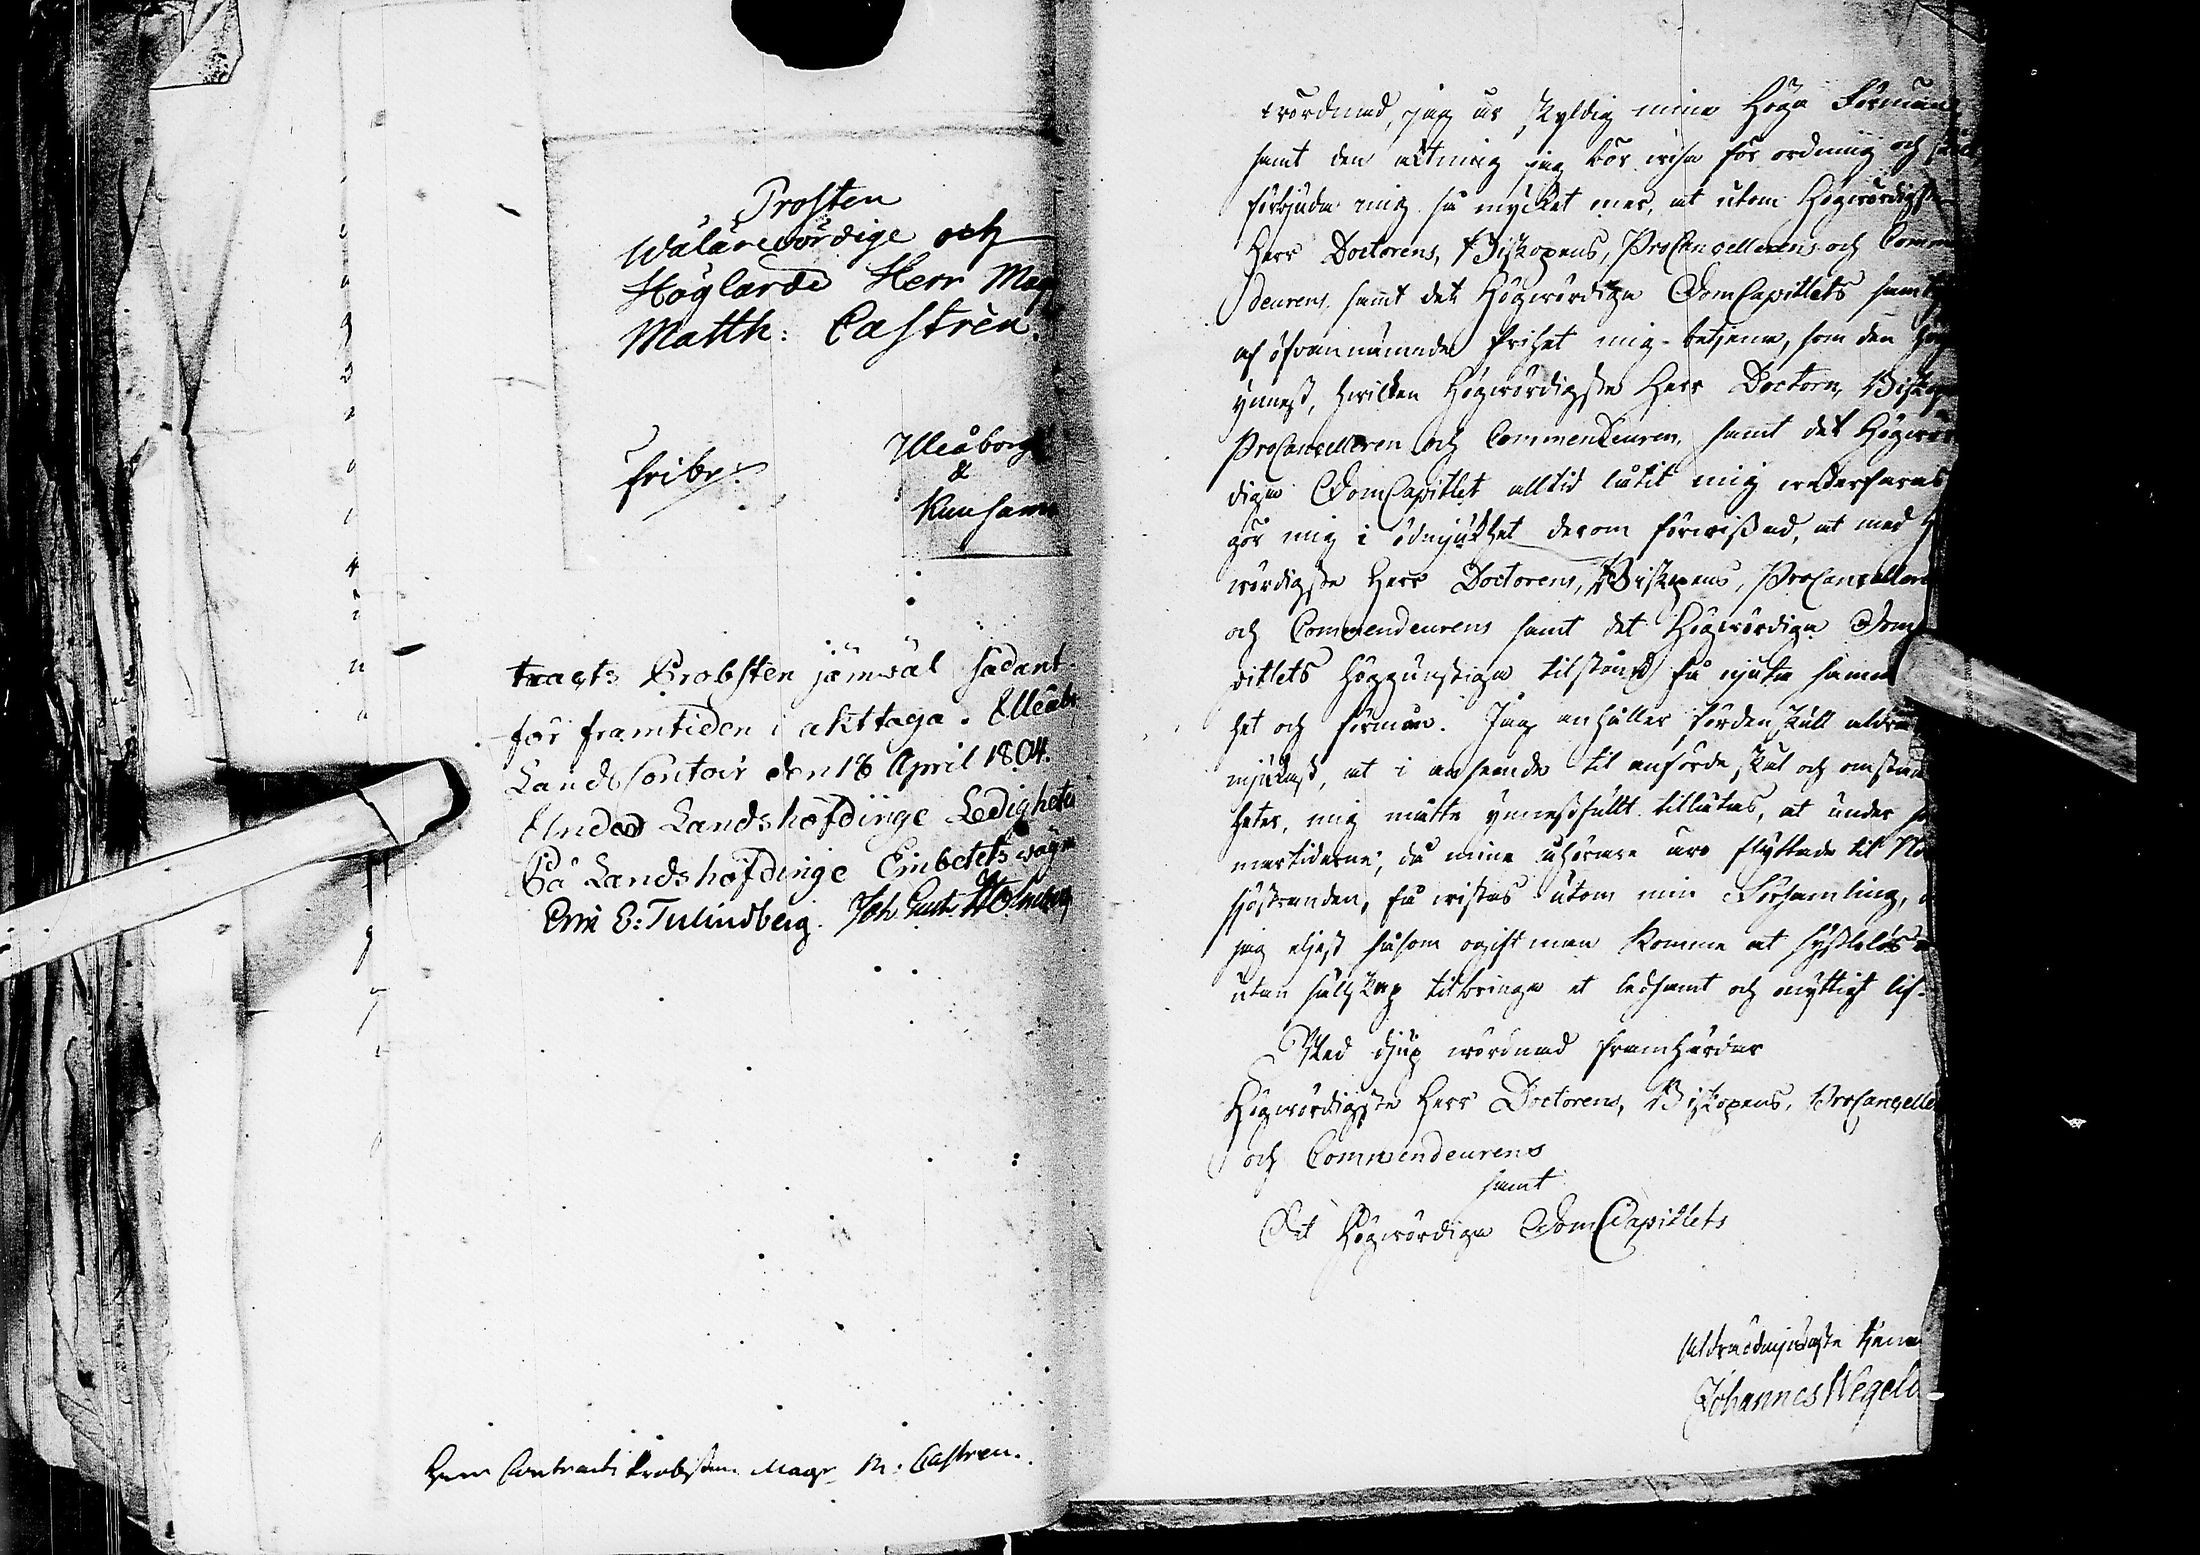 Prosten
Wälärewördige och
Höglärde Herr Mag
Matth: Castrèn.
fribr:
Uleåborg
&
Kuusamo
tracts Probsten jämwäl sådant
för framtiden i akttaga. Uleåb
LandsContoir den 18 April 1804.
Under Landshöfdinge Ledigheten
På Landshöfdinge Embetets wägn
Eric E: Tulindberg. Joh. Gust.
Herr Contracts Probsten Magr M: Castren.
wördnad, jag är skyldig mina Höga Förmän
samt den aktning jag bör wisa för ordning och
förbjuda mig så mycket mer, at utom Högwördigste
Herr Doctorens, Biskopens, ProCancellerens och Comm
deurens, samt det Högwördiga DomCapitlets samty
af ofvannämnde frihet mig betjena, som den hög
ynnest, hwilken Högwördigste Herr Doctorn, Biskop
ProCancelleren och Commendeuren, samt det Högwör
diga DomCapitlet alltid låtit mig wederfaras
gör mig i ödmjukhet derom förwissad, at med H
wördigste Herr Doctorens, Biskopens, ProCancellere
och Commendeurens samt det Högwördiga Dom
pitlets höggunstiga tilstånd få njuta samma
het och förmån. Jag anhåller förden skull aldra
mjukast, at i anseende til anförde skäl och omstän
heter, mig måtte ynnestfullt tillåtas, at under
martiderne, då mine åhörare äro flyttade til
sjöstranden, få wistas utom min Församling,
jag eljest såsom ogift man komme at sysslolös
utan sällskap tilbringa et ledsamt och onyttigt lif.
Med djup wördnad framhärdar
Högwördigste Herr Doctorens, Biskopens, ProCancelle
och Commendeurens
samt
Det Högwördiga DomCapitlets
Aldraödmjukaste tjena
Johannes Wegeli